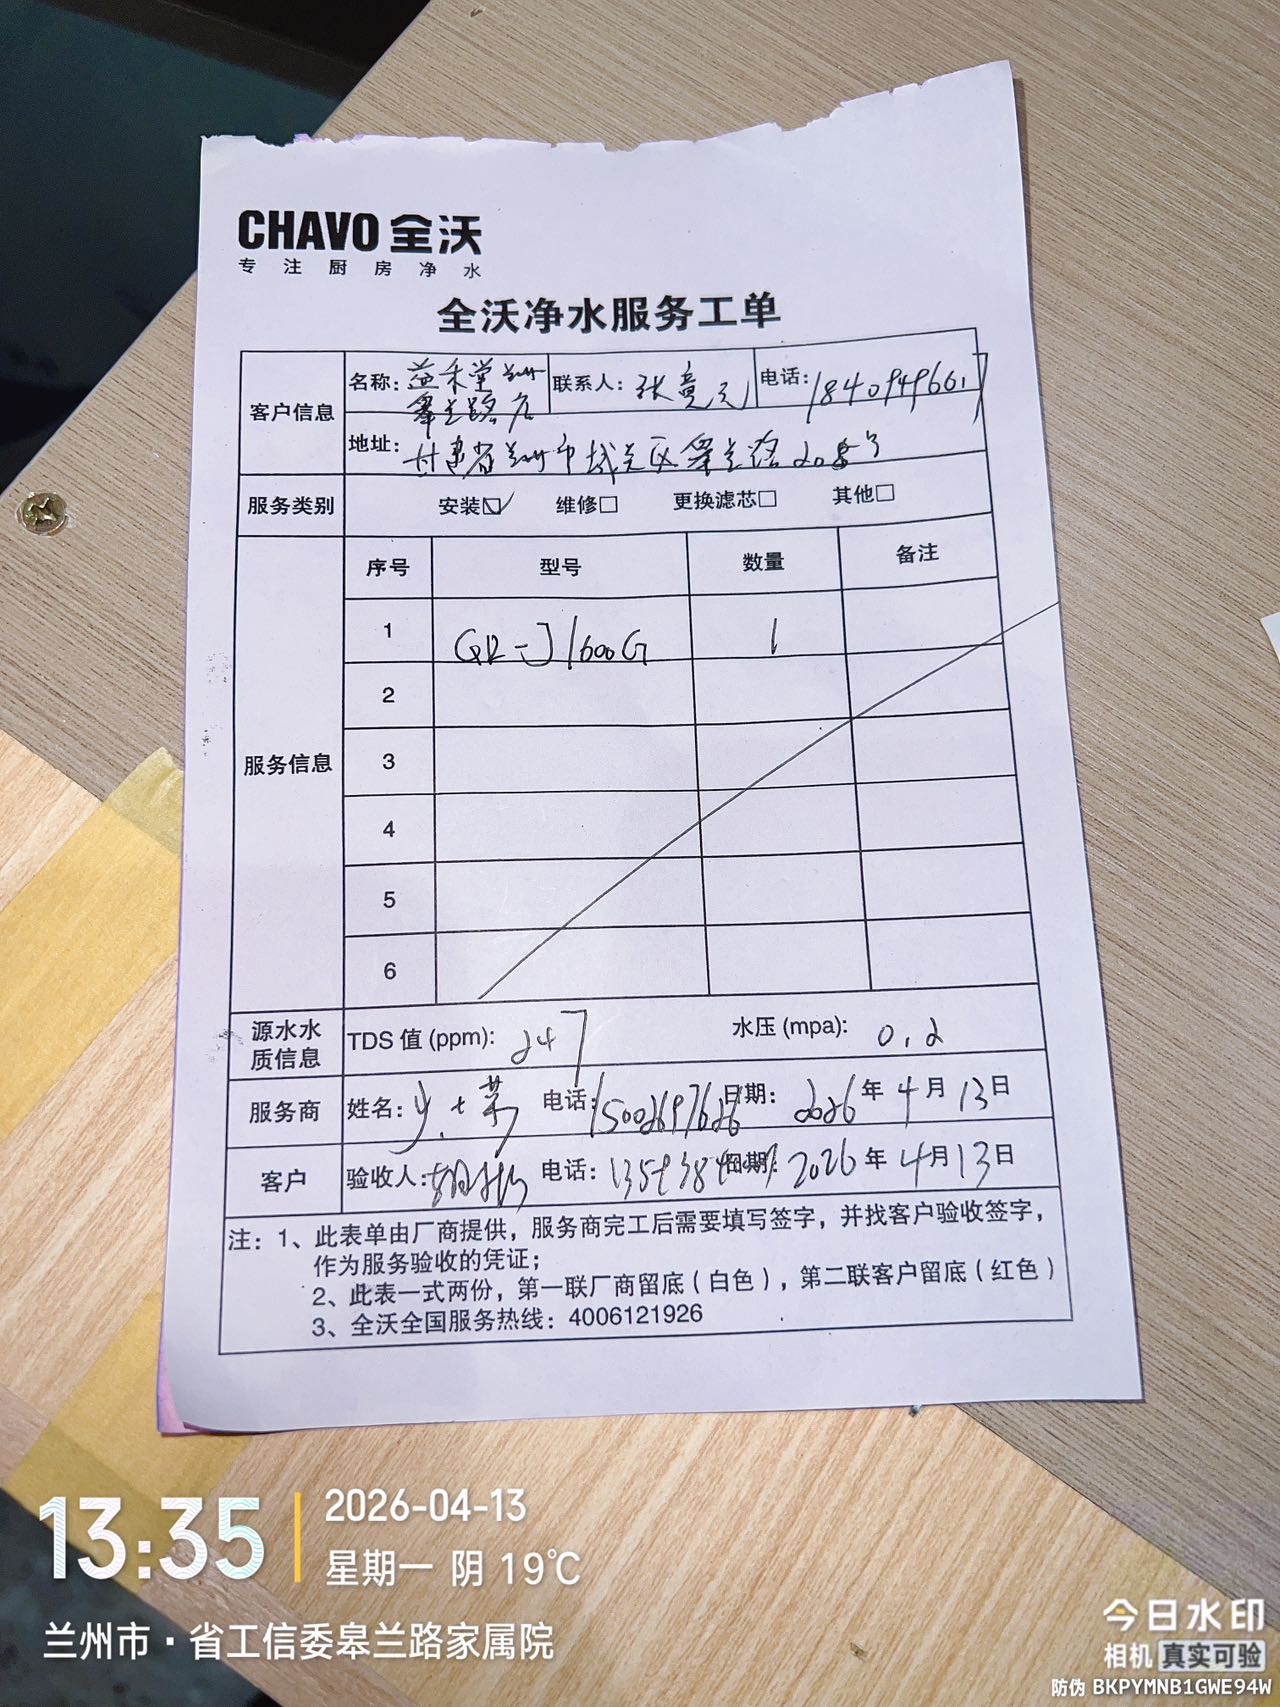 CHAVO 全沃
专注厨房净水
全沃净水服务工单
客户信息 名称：益禾堂兰州皋兰路店 联系人：张竟元 电话：
地址：甘肃省兰州市城关区皋兰路208号
服务类别 安装☑ 维修□ 更换滤芯□ 其他□
服务信息 序号 型号 数量 备注
1 QR-J1600G 1
2
3
4
5
6
源水水质信息 TDS 值 (ppm)：247 水压 (mpa)：0.2
服务商 姓名： 电话：15002697626 日期：2026年4月13日
客户 验收人： 电话： 日期：2026年4月13日
注：1、此表单由厂商提供，服务商完工后需要填写签字，并找客户验收签字，
作为服务验收的凭证；
2、此表一式两份，第一联厂商留底（白色），第二联客户留底（红色）
3、全沃全国服务热线：4006121926
13:35
2026-04-13
星期一 阴 19℃
兰州市·省工信委皋兰路家属院
今日水印
相机 真实可验
防伪 BKPYMNB1GWE94W